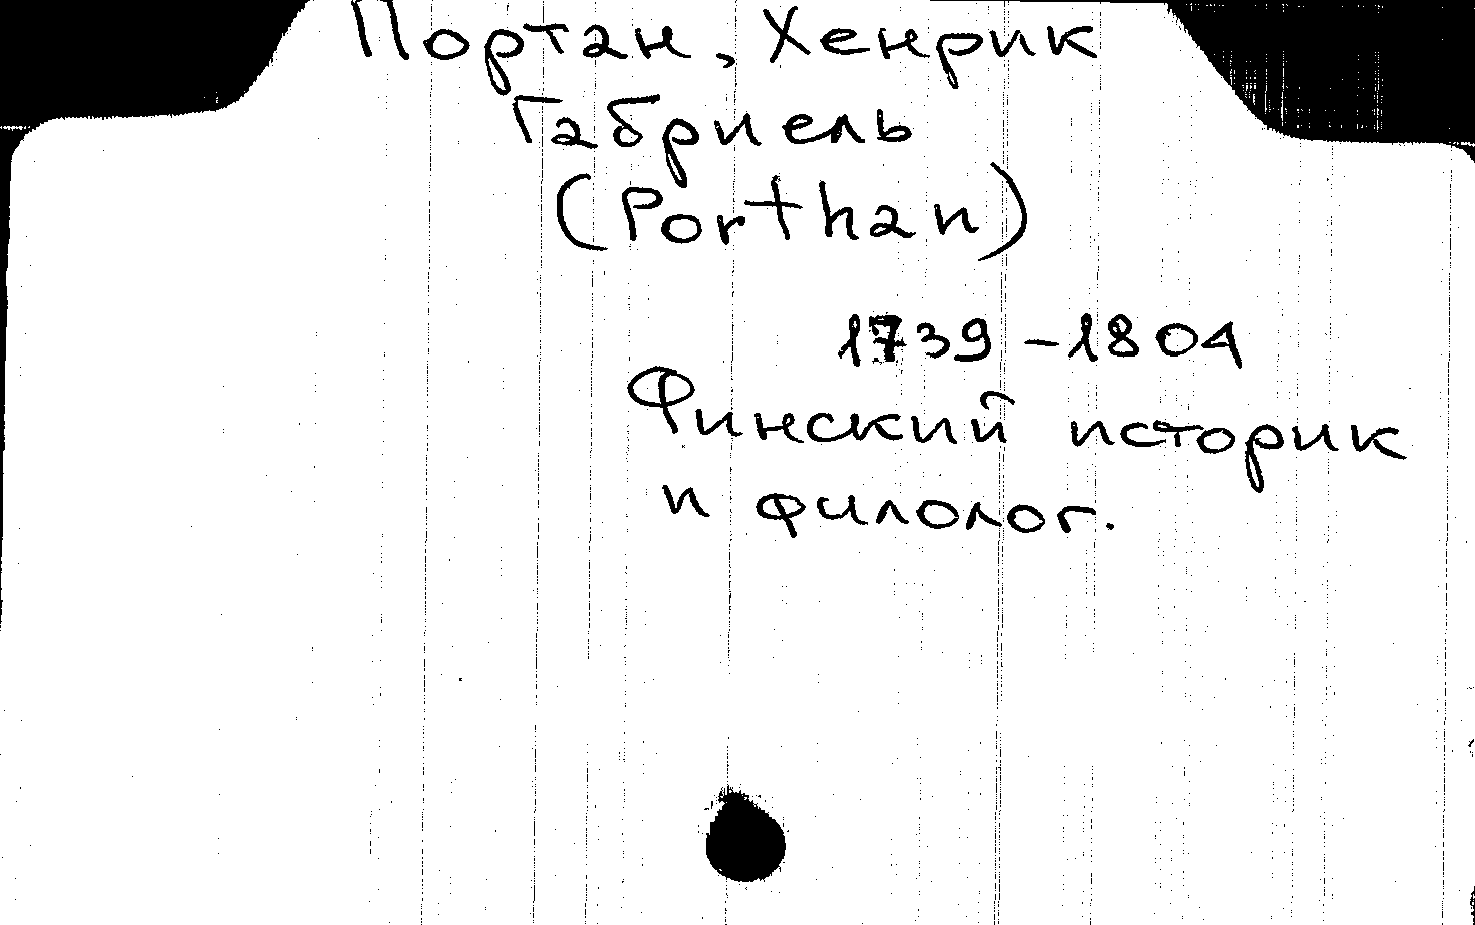 Портан, Хенрик
Габриель
(Porthan)
1739-1804
Финский историк
и филолог.